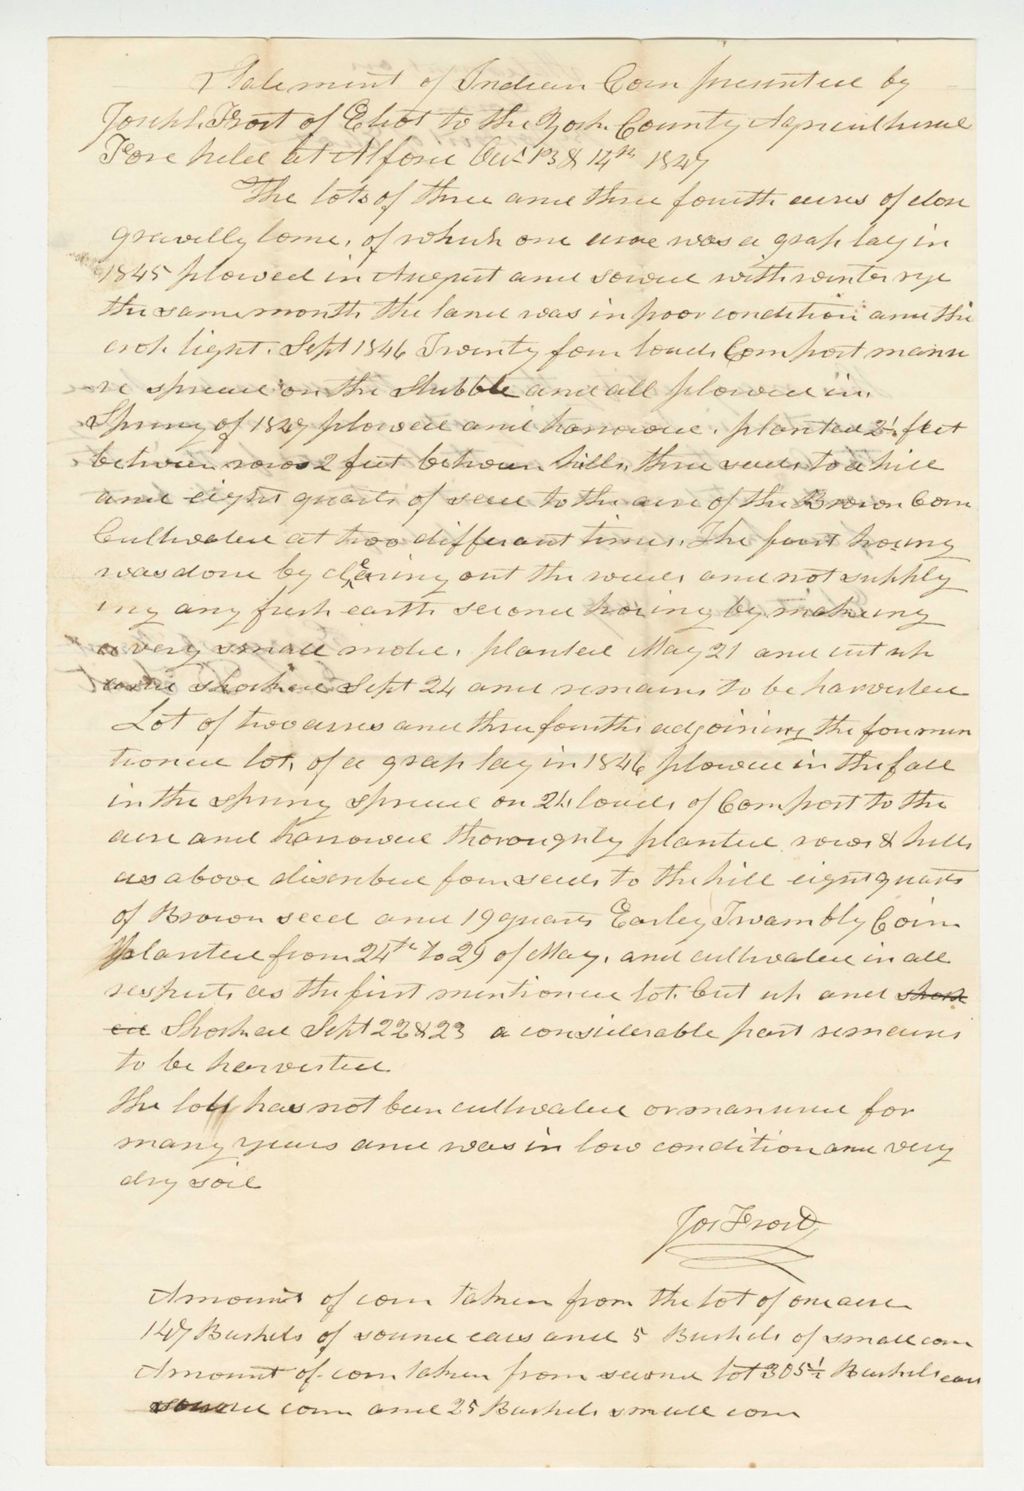 Statement of Indian Corn presented by
Joseph Frost of Eliot to the York County Agricultural
Fare held at Alfred Oct 13 & 14th 1847
The lots of three and three fourth acres of clon
gravelly lome, of which one acre was a grass lay in
1845 plowed in August and sowed with winter rye
the same month the land was in poor condition and the
crop light. Sept 1846 Twenty four loads Compost manu
re spread on the Stubble and all plowed in.
Spring of 1847 plowed and harrowed. planted 2½ feet
between rows 2 feet between hills, three seeds to a hill
and eight quarts of seed to the acre of the Brown Corn
Cultivated at two different times. The first hoeing
was done by clearing out the weeds and not supply
ing any fresh earth second hoeing by making
a very small mole. planted May 21 and cut up
and shocked Sept 24 and remains to be harvested
Lot of two acres and three fourths adjoining the formen
tioned lot, of a grass lay in 1846 plowed in the fall
in the spring spread on 24 loads of Compost to the
acre and harrowed thoroughly planted rows & hills
as above discribed four seeds to the hill eight quarts
of Brown seed and 19 quarts Earley Twambly Corn
Planted from 24th to 29 of May, and cultivated in all
respects as the first mentioned lot. Cut up and shock
ed Shocked Sept 22 & 23 a considerable part remains
to be harvested
the lott has not been cultivated or manured for
many years and was in low condition and very
dry soil
Jos Frost
Amount of corn taken from the lot of one acre
147 Bushels of sound ears and 5 Bushels of small corn
Amount of corn taken from second lot 305½ Bushels ears
sound corn and 25 Bushels small corn